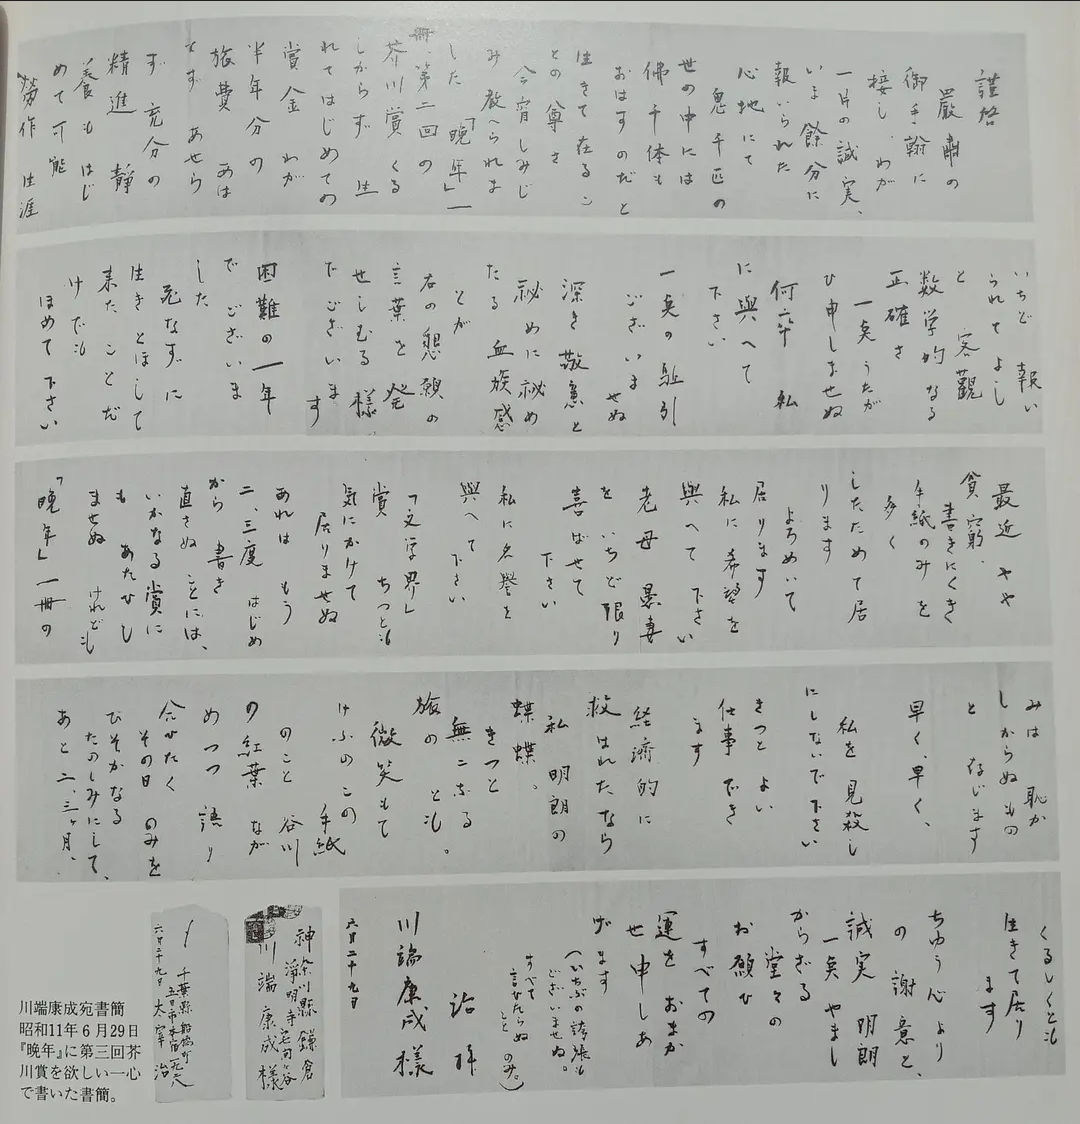 謹啓
嚴肅の
御手翰に
接し、わが
一片の誠実、
いま餘分に
報いられた
心地にて
鬼千匹の
世の中には
佛千体も
おはすのだと
生きて在るこ
との尊さ
今宵しみじ
み教へられま
した「晩年」一
冊、第二回の
芥川賞くる
しからず 生
れてはじめての
賞金 わが
半年分の
旅費 あは
てず あせら
ず 充分の
精進 静
養も はじ
めて可能
勞作 生涯
いちど 報い
られてよし
と 客觀
数学的なる
正確さ
一点うたが
ひ申しませぬ
何卒 私
に與へて
下さい
一点の駈引
ございませぬ
深き敬意と
祕めに祕め
たる血族感
とが
右の懇願の
言葉を発
せしむる様
でございます
困難の一年
でございま
した
死なずに
生きとほして
来たことだ
けでも
ほめて下さい
最近やや
貧窮、
書きにくき
手紙のみを
多く
したためて居
ります
よろめいて
居ります
私に希望を
與へて下さい
老母 愚妻
をいちど限り
喜ばせて
下さい
私に名誉を
與へて下さい
「文学界」
賞 ちつとも
気にかけて
居りませぬ
あれは もう
二、三度 はじめ
から 書き
直さぬことには、
いかなる賞に
も あたひし
ませぬ けれども
「晩年」一冊の
みは 恥か
しからぬもの
と 存じます
早く、早く、
私を見殺し
にしないで下さい
きつとよい
仕事できます
経済的に
救はれたなら
私 明朗の
蝶蝶。
きつと
無二なる
旅のとも。
微笑もて
けふのこの手紙
のこと 谷川
の紅葉 なが
めつつ 語り
合ひたく
その日のみを
ひそかなる
たのしみにして、
あと二、三ヶ月、
くるしくとも
生きて居ります
ちゆう心より
の謝意と、
誠実 明朗
一点やまし
からざる
堂々の
お願ひ
すべての
運を おまか
せ申しあ
げます
(いちぶの誇張も
ございませぬ。
すべて
言ひたらぬことのみ。)
治拝
川端康成様
六月二十九日
神奈川縣鎌倉
淨明寺宅間ヶ谷
川端康成様
千葉縣船橋町
五日市本宿一九二八
太宰治
六月二十九日
川端康成宛書簡
昭和11年6月29日
『晩年』に第三回芥
川賞を欲しい一心
で書いた書簡。